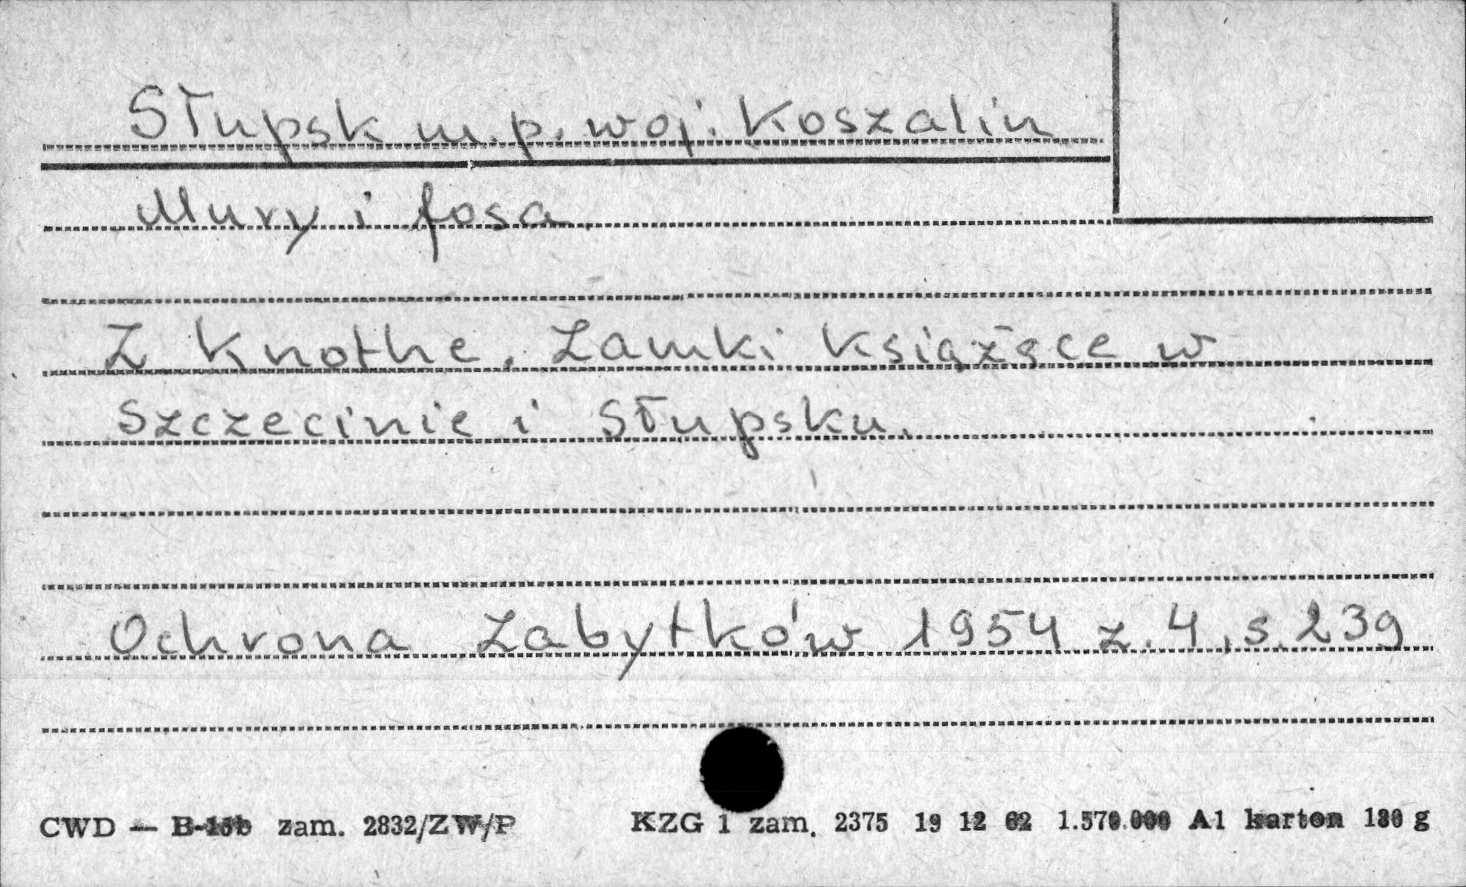 Słupsk m.p. woj. Koszalin
Mury i fosa.
Z Knothe. Zamki książęce w
Szczecinie i Słupsku.
Ochrona Zabytków 1954 z. 4, s. 239
CWD — B-15b zam. 2832/ZW/P KZG 1 zam. 2375 19 12 62 1.570.000 A1 karton 180 g